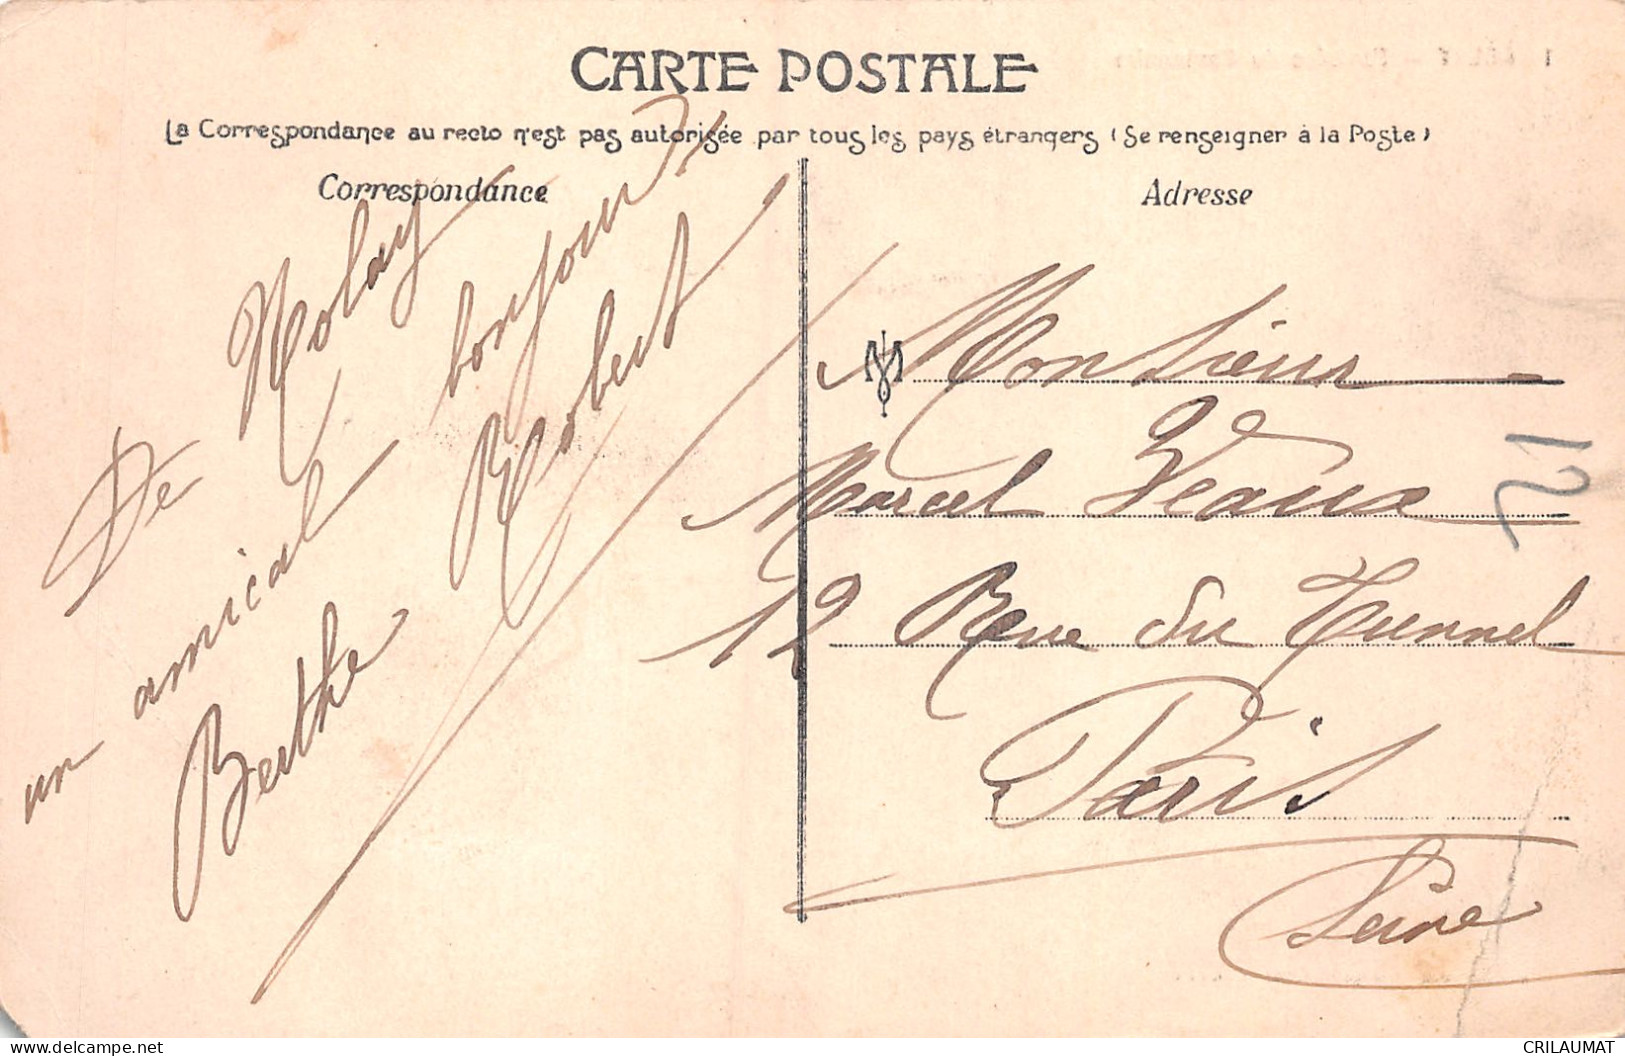 CARTE POSTALE
La Correspondance au recto n'est pas autorisée par tous les pays étrangers (Se renseigner à la Poste)
Correspondance
De Molay
un amical bonjour
Berthe Robert
Adresse
Monsieur
Marcel Veaux
12 Rue du Tunnel
Paris
Seine
21
CRILAUMAT